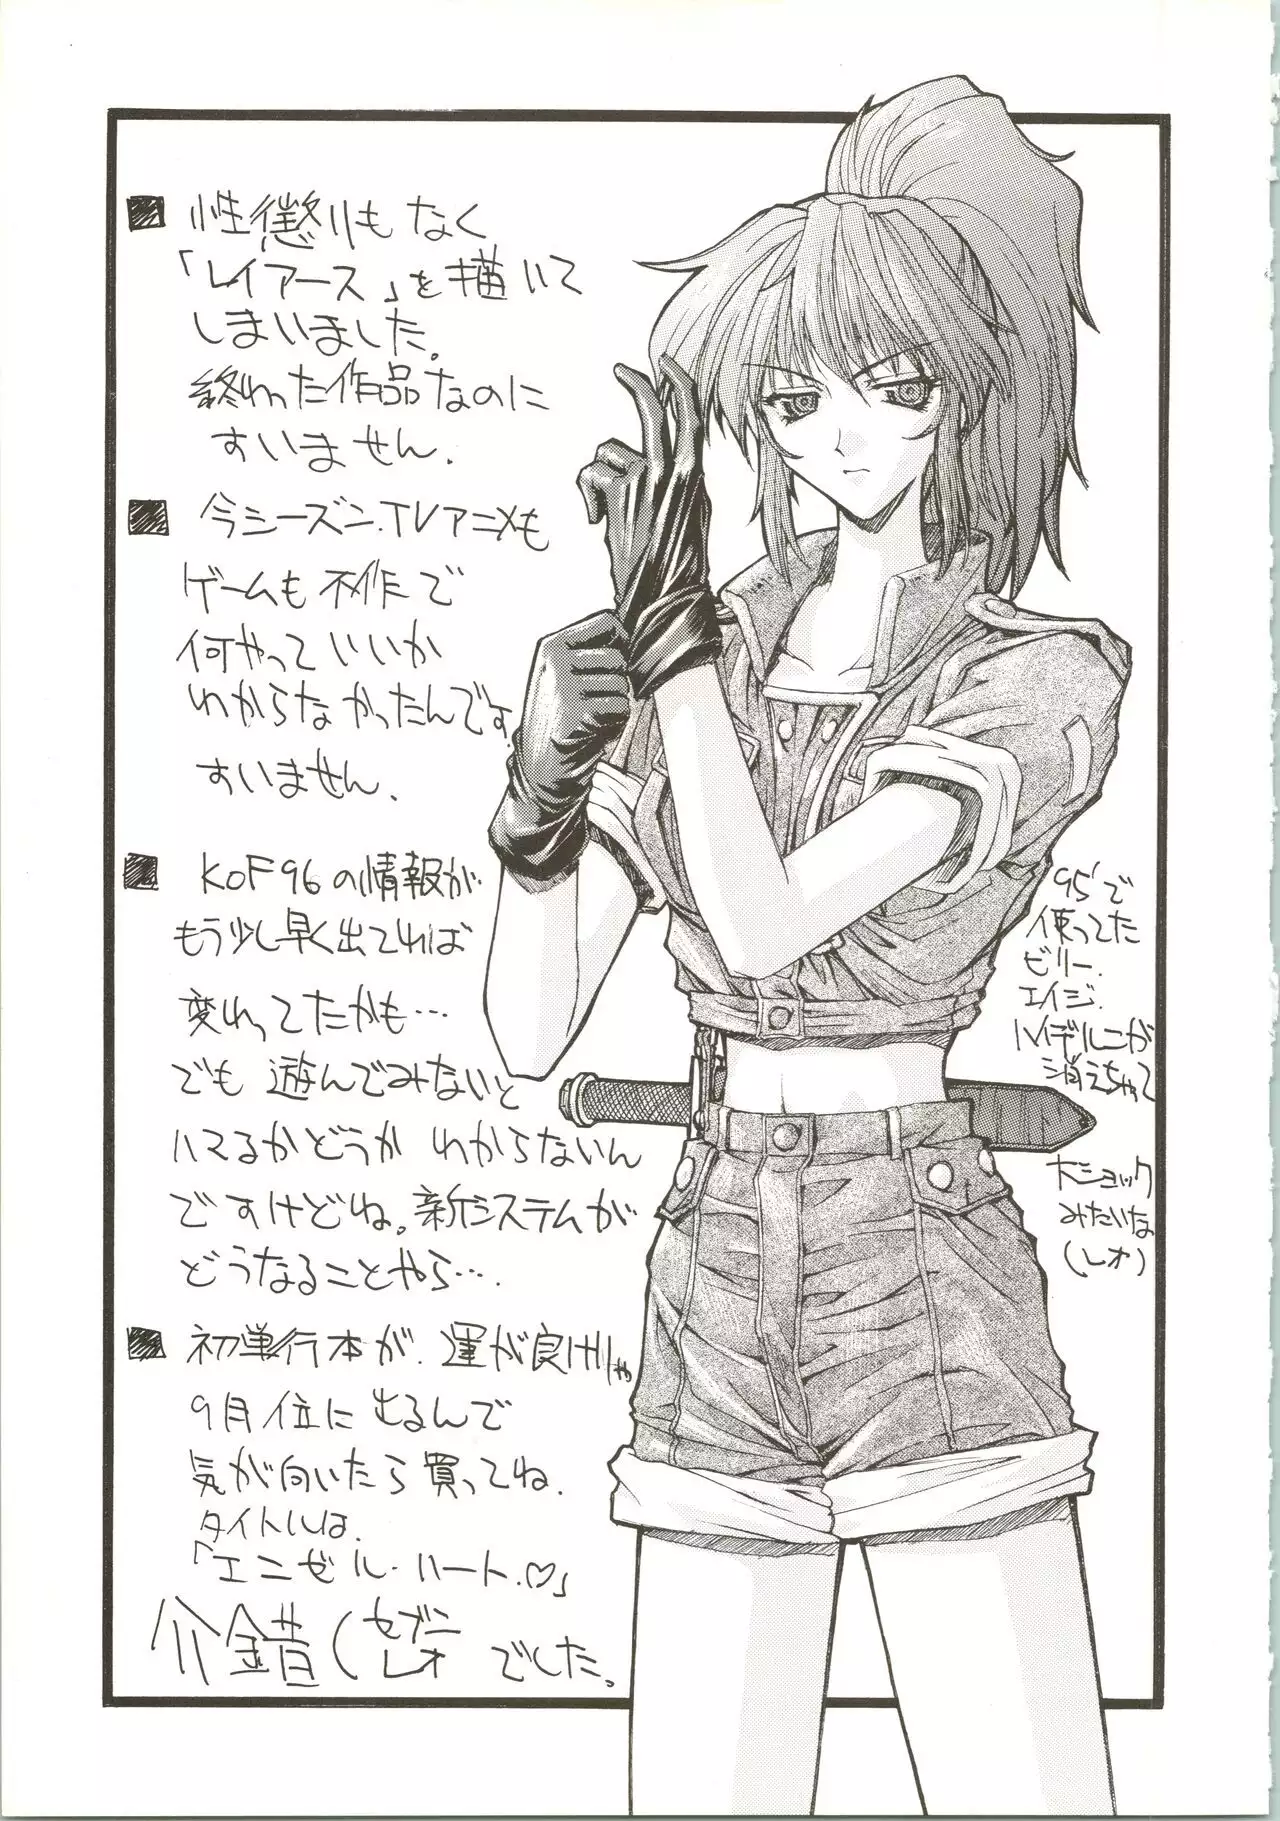 ■性懲りもなく
「レイアース」を描いて
しまいました。
終わった作品なのに
すいません.
■今シーズン.TVアニメも
ゲームも不作で
何やっていいか
わからなかったんです.
すいません.
■KOF96の情報が
もう少し早く出てれば
変わってたかも…
でも遊んでみないと
ハマるかどうかわからないん
ですけどね。新システムが
どうなることやら….
■初単行本が.運が良けりゃ
9月位に出るんで
気が向いたら買ってね.
タイトルは.
「エンゼル.ハート.♡」
介錯(セブン
レオ
でした。
95'で
使ってた
ビリー.
エイジ.
ハイデルンが
消えちゃって
大ショック
みたいな
(レオ)